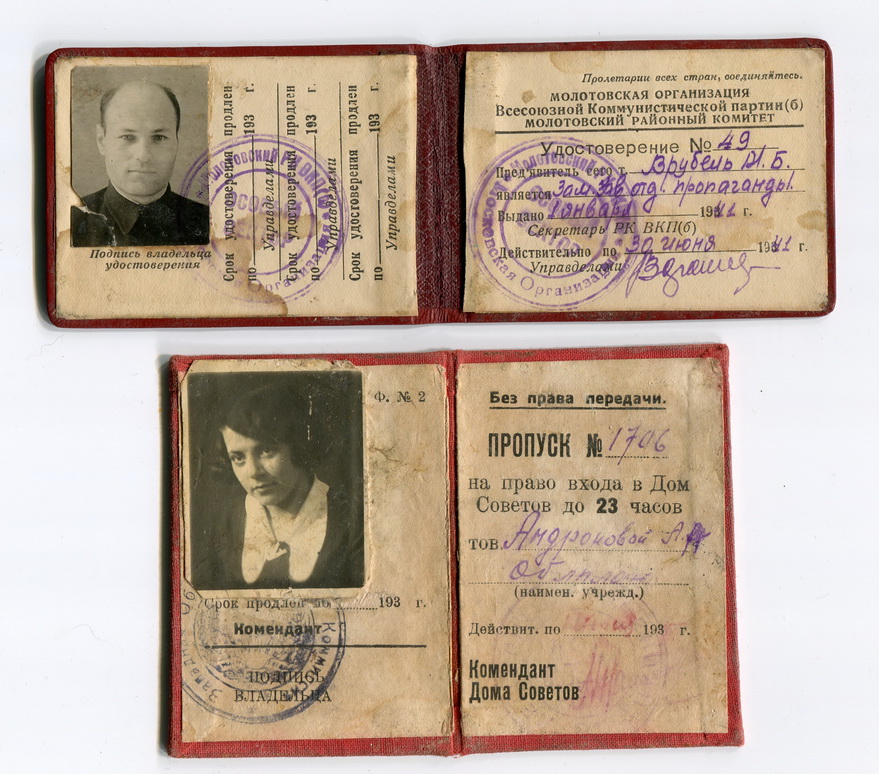 Срок удостоверения продлен
по 193 г.
Управделами
Срок удостоверения продлен
по 193 г.
Управделами
Срок удостоверения продлен
по 193 г.
Управделами
Подпись владельца
удостоверения
Пролетарии всех стран, соединяйтесь.
МОЛОТОВСКАЯ ОРГАНИЗАЦИЯ
Всесоюзной Коммунистической партии(б)
МОЛОТОВСКИЙ РАЙОННЫЙ КОМИТЕТ
Удостоверение № 49
Пред'явитель сего т. Врубель И. Б.
является Зам. Зав отд. пропаганды.
Выдано 1 января 1941 г.
Секретарь РК ВКП(б)
Действительно по 30 июня 1941 г.
Управделами
Ф. № 2
Срок продлен по 193 г.
Комендант
ПОДПИСЬ
ВЛАДЕЛЬЦА
Без права передачи.
ПРОПУСК № 1706
на право входа в Дом
Советов до 23 часов
тов. Андроновой А.
(наимен. учрежд.)
Действит. по 193 г.
Комендант
Дома Советов